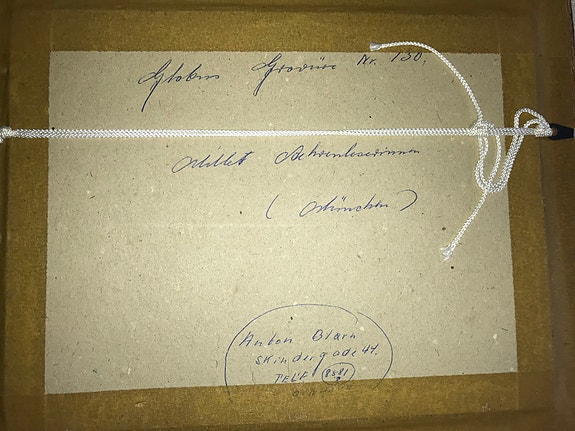 Globus Gravüre Nr. 130.
Millet Aehrenleserinnen
(München)
Anton Blarn
Skindergade 41.
TELF 8581